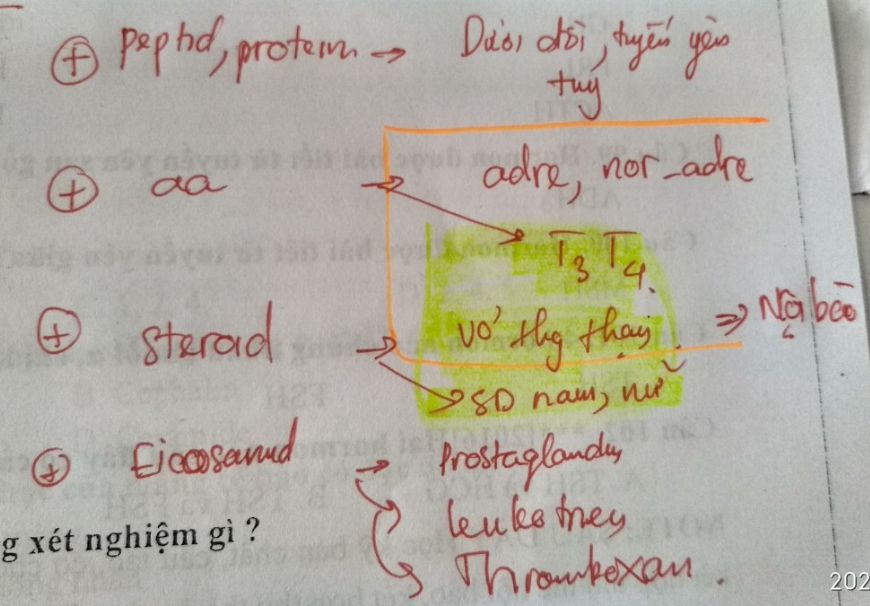 + peptid, protein → Dưới đồi, tuyến yên
tuỵ
+ aa → adre, nor-adre
T3 T4.
+ steroid → vỏ thg thận ⇒ Nội bào
SD nam, nữ
+ Eicosanoid → Prostaglandin
leukotrien
Thromboxan.
g xét nghiệm gì ?
202